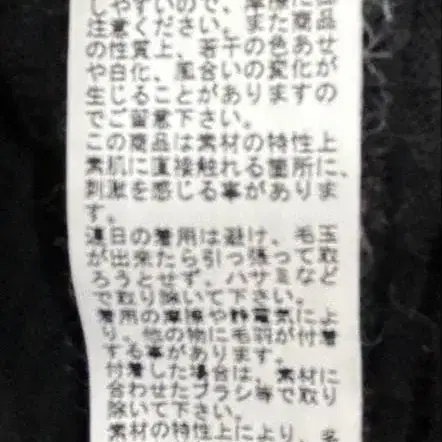 しやすいので、摩擦に
注意ください。また商品
の性質上、若干の色あせ
や白化、風合いの変化が
生じることがありますの
でご留意下さい。
この商品は素材の特性上
素肌に直接触れる箇所に、
刺激を感じる事がありま
す。
連日の着用は避け、毛玉
が出来たら引っ張って取
ろうとせず、ハサミなど
で取り除いて下さい。
着用の摩擦や静電気によ
り、他の物に毛羽が付着
する事があります。
付着した場合は、素材に
合わせたブラシ等で取り
除いて下さい。
素材の特性上により、多